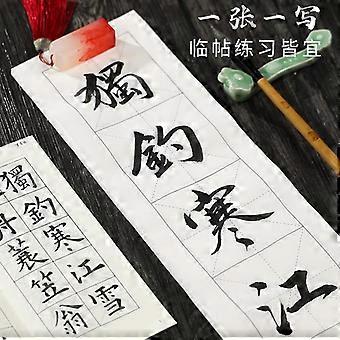 一张一写
临帖练习皆宜
獨釣寒江
獨釣寒江雪
舟蓑笠翁